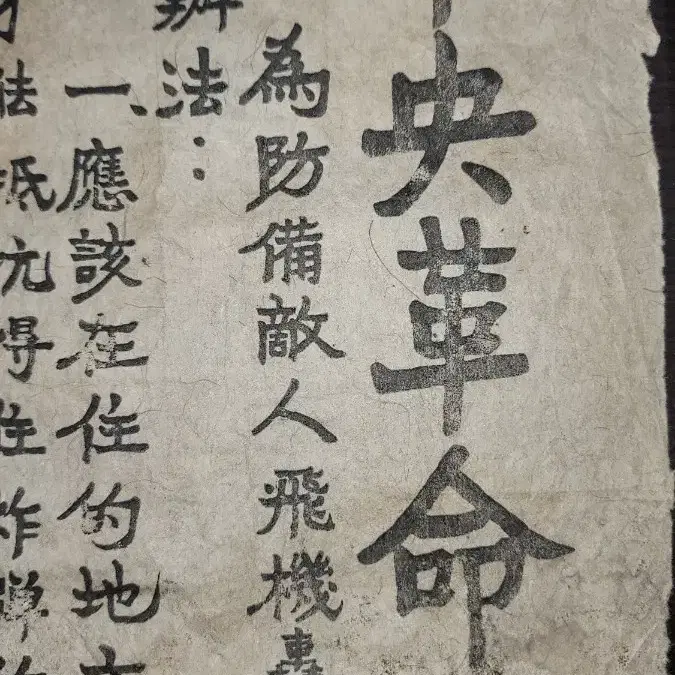 央革命
為防備敵人飛機
辦法：
一、應該在住的地方
法抵亢得住炸弹